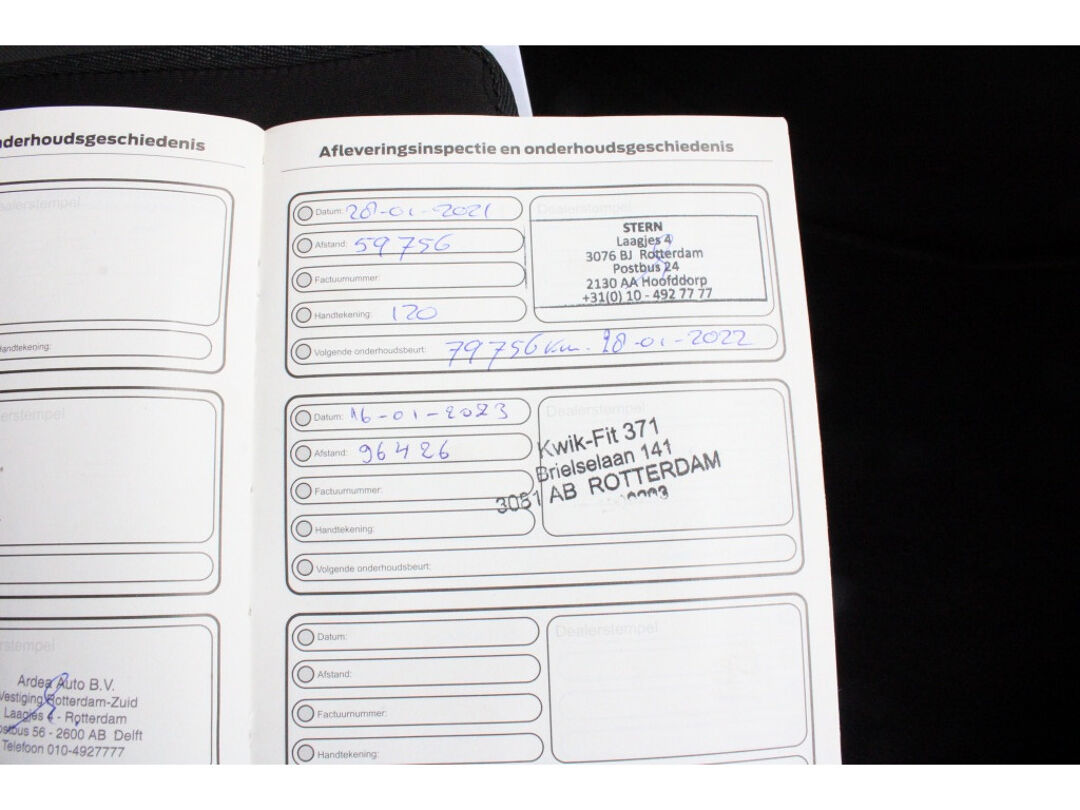 nderhoudsgeschiedenis
ealerstempel
Handtekening:
erstempel
rstempel
Ardea Auto B.V.
Vestiging Rotterdam-Zuid
Laagjes 4 - Rotterdam
ostbus 56 - 2600 AB Delft
Telefoon 010-4927777
Afleveringsinspectie en onderhoudsgeschiedenis
Datum: 28-01-2021
Afstand: 59756
Factuurnummer:
Handtekening: 120
Dealerstempel
STERN
Laagjes 4
3076 BJ Rotterdam
Postbus 24
2130 AA Hoofddorp
+31(0) 10 - 492 77 77
Volgende onderhoudsbeurt: 79756 km. 28-01-2022
Datum: 16-01-2023
Afstand: 96426
Factuurnummer:
Handtekening:
Dealerstempel
Kwik-Fit 371
Brielselaan 141
3081 AB ROTTERDAM
Volgende onderhoudsbeurt:
Datum:
Afstand:
Factuurnummer:
Handtekening:
Dealerstempel